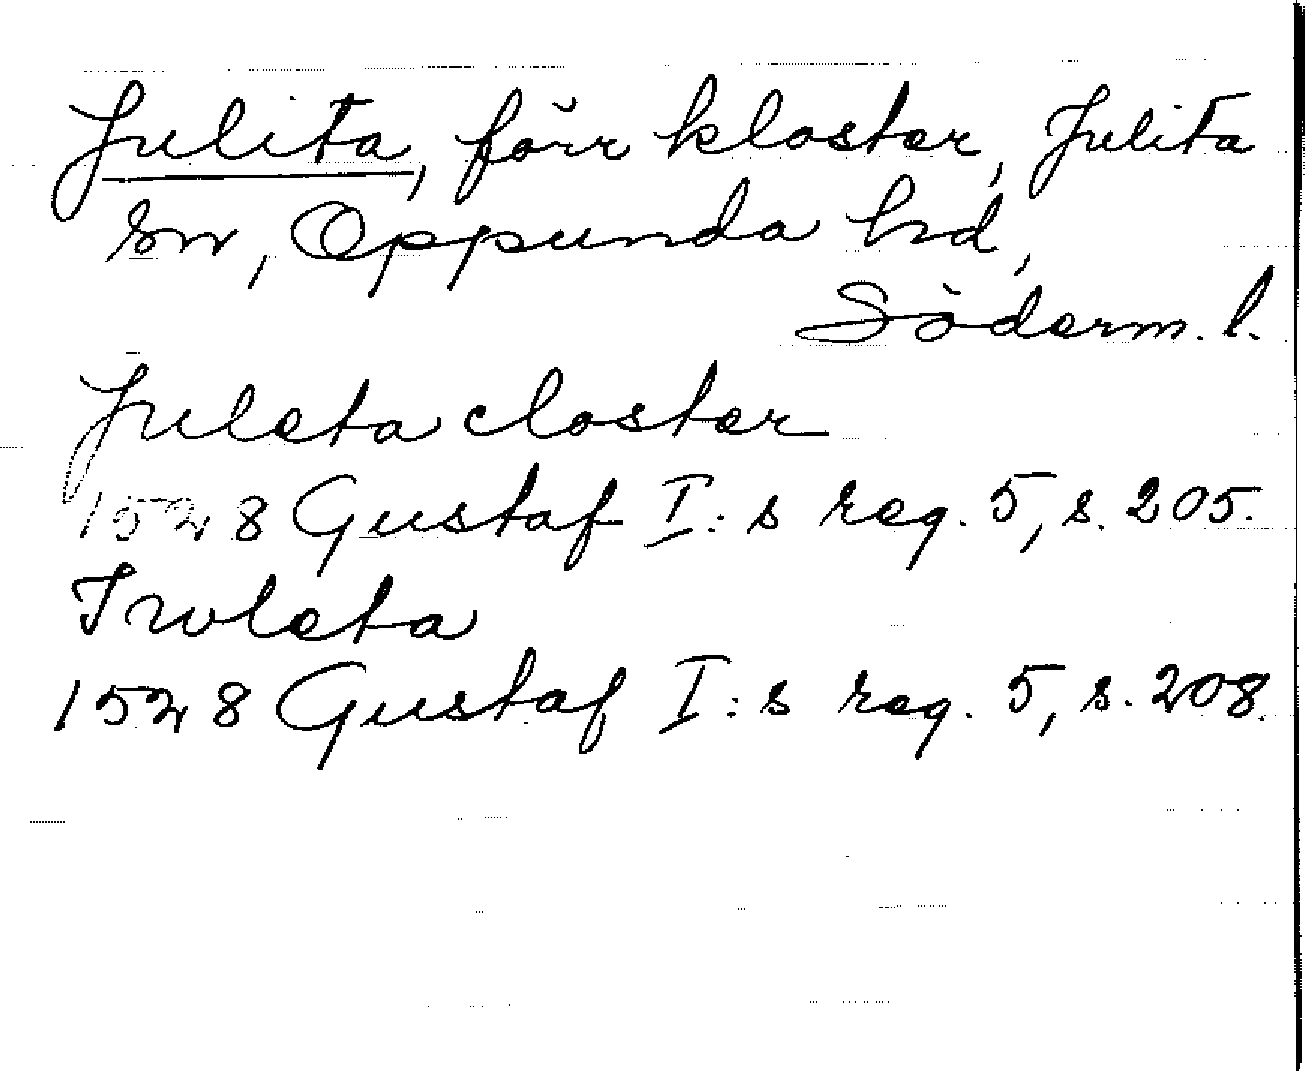 Julita, förr kloster, Julita
sn, Oppunda hd,
Söderm. l.
Juleta closter
1528 Gustaf I:s reg. 5, s. 205.
Iwleta
1528 Gustaf I:s reg. 5, s. 208.